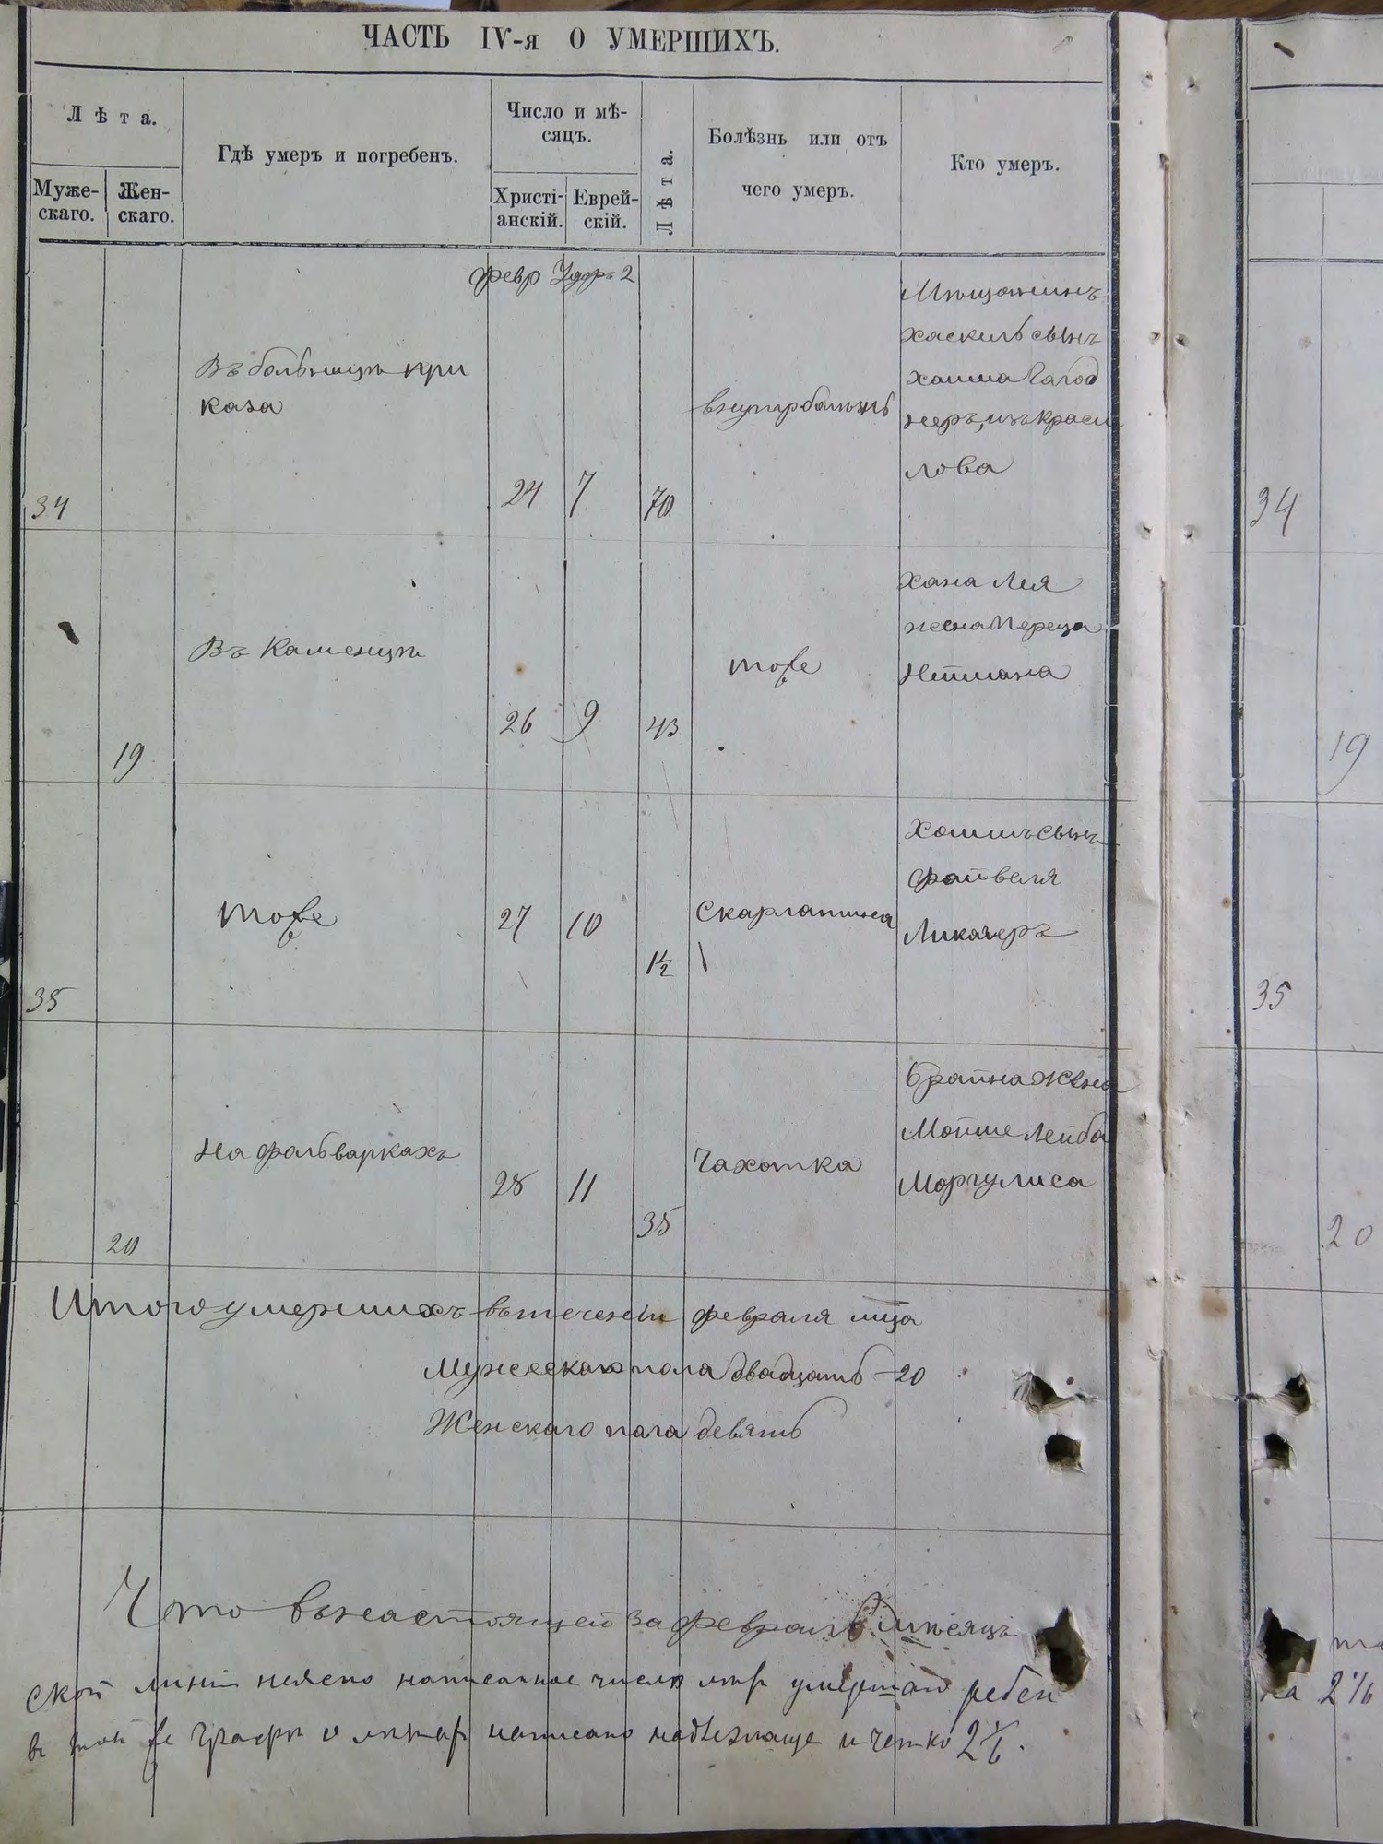 ЧАСТЬ IV-я О УМЕРШИХЪ.
Лѣта.
Муже-
скаго.
Жен-
скаго.
Гдѣ умеръ и погребенъ.
Число и мѣ-
сяцъ.
Христі-
анскій.
Еврей-
скій.
Лѣта.
Болѣзнь или отъ
чего умеръ.
Кто умеръ.
февр Удръ 2
34
Въ больницѣ при
каза
24
7
70
Мѣщанинъ
Хаскиль сынъ
Хаима Гагод
неръ, изъ Краси
лова
34
19
Въ Каменцѣ
26
9
43
тоже
Хана Лея
жена Переца
Неймана
19
35
тоже
27
10
1½
Скарлатина
Хаимъ сынъ
Файвеля
35
20
На фольваркахъ
28
11
35
Чахотка
Брайна жена
Мойше Лейба
Моргулиса
20
Итого умершихъ въ теченіи февраля мца
Мужескаго пола двадцать - 20
Женскаго пола девять
Что въ настоящей за февраль мѣсяцъ
ской линіи неясно написанное число лѣтъ умершаго ребен
ка 2½
в той же графѣ о лѣтах написано надлежаще и четко 2½.